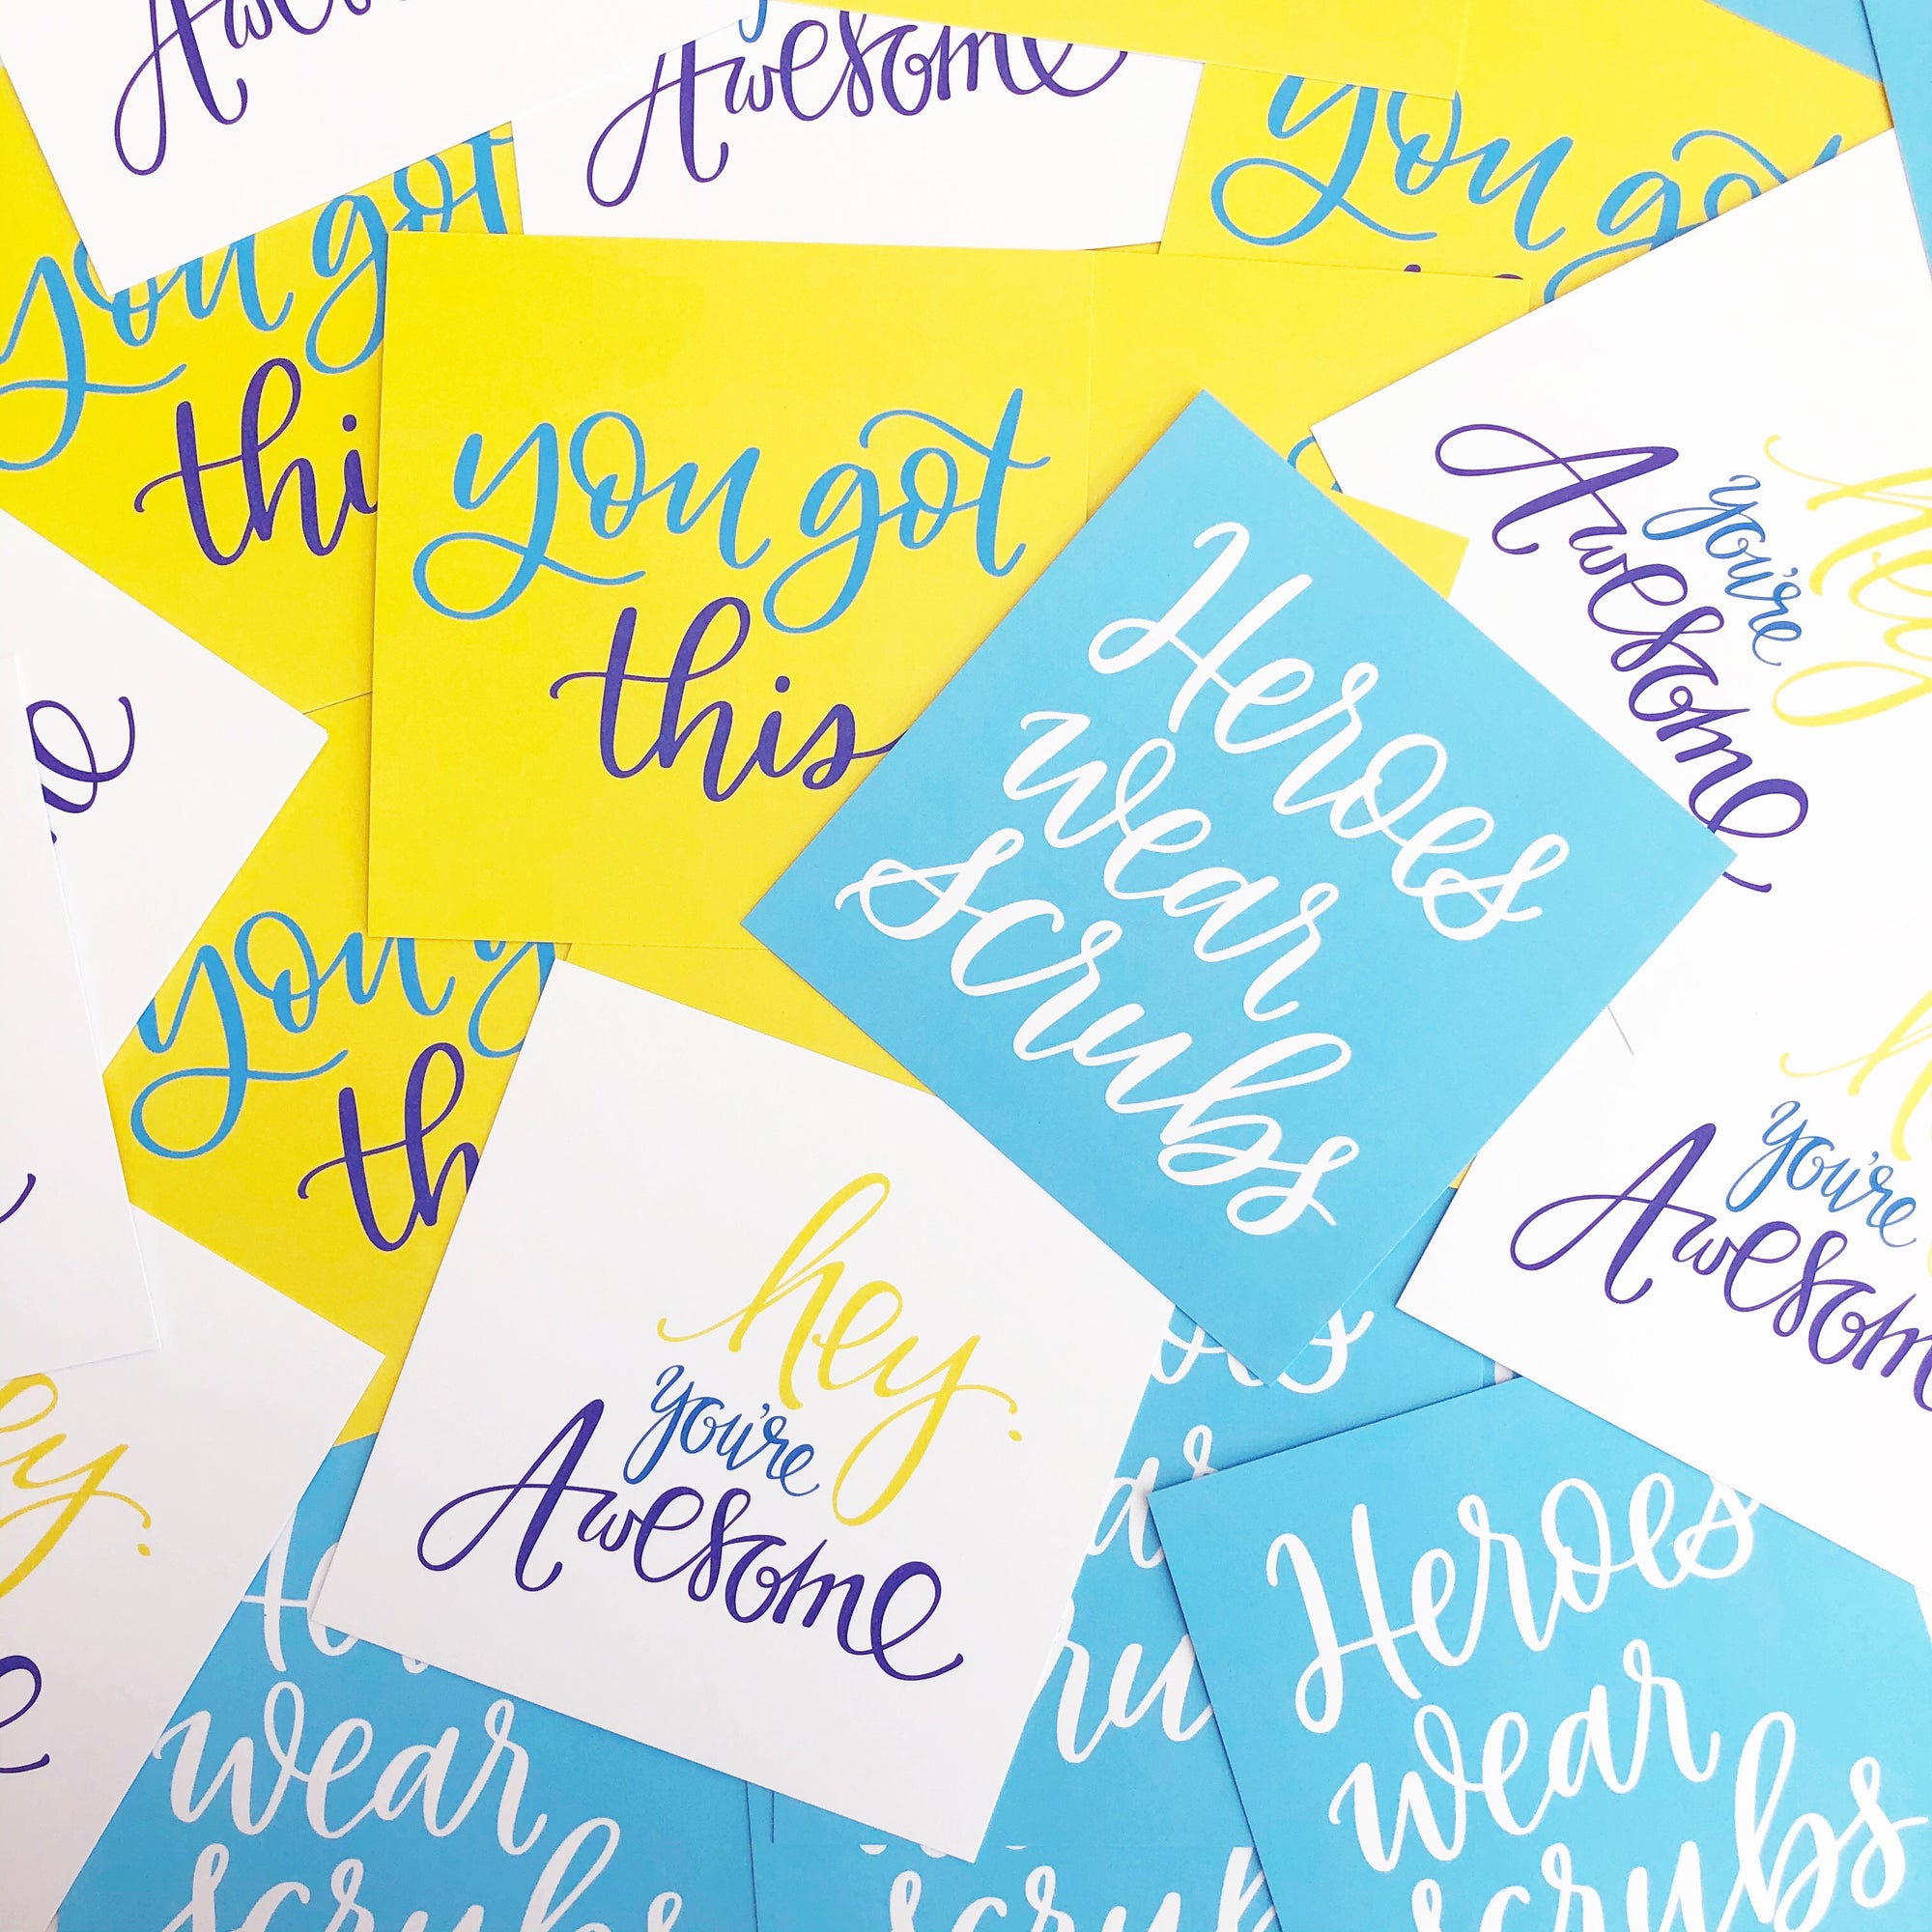 Awesome
you got
you got
thi
you got
this
Heroes
wear
scrubs
hey
you're
Awesome
you
th
hey.
you're
Awesome
you're
Awesome
ey.
Heroes
wear
scrubs
wear
scrubs
scrub